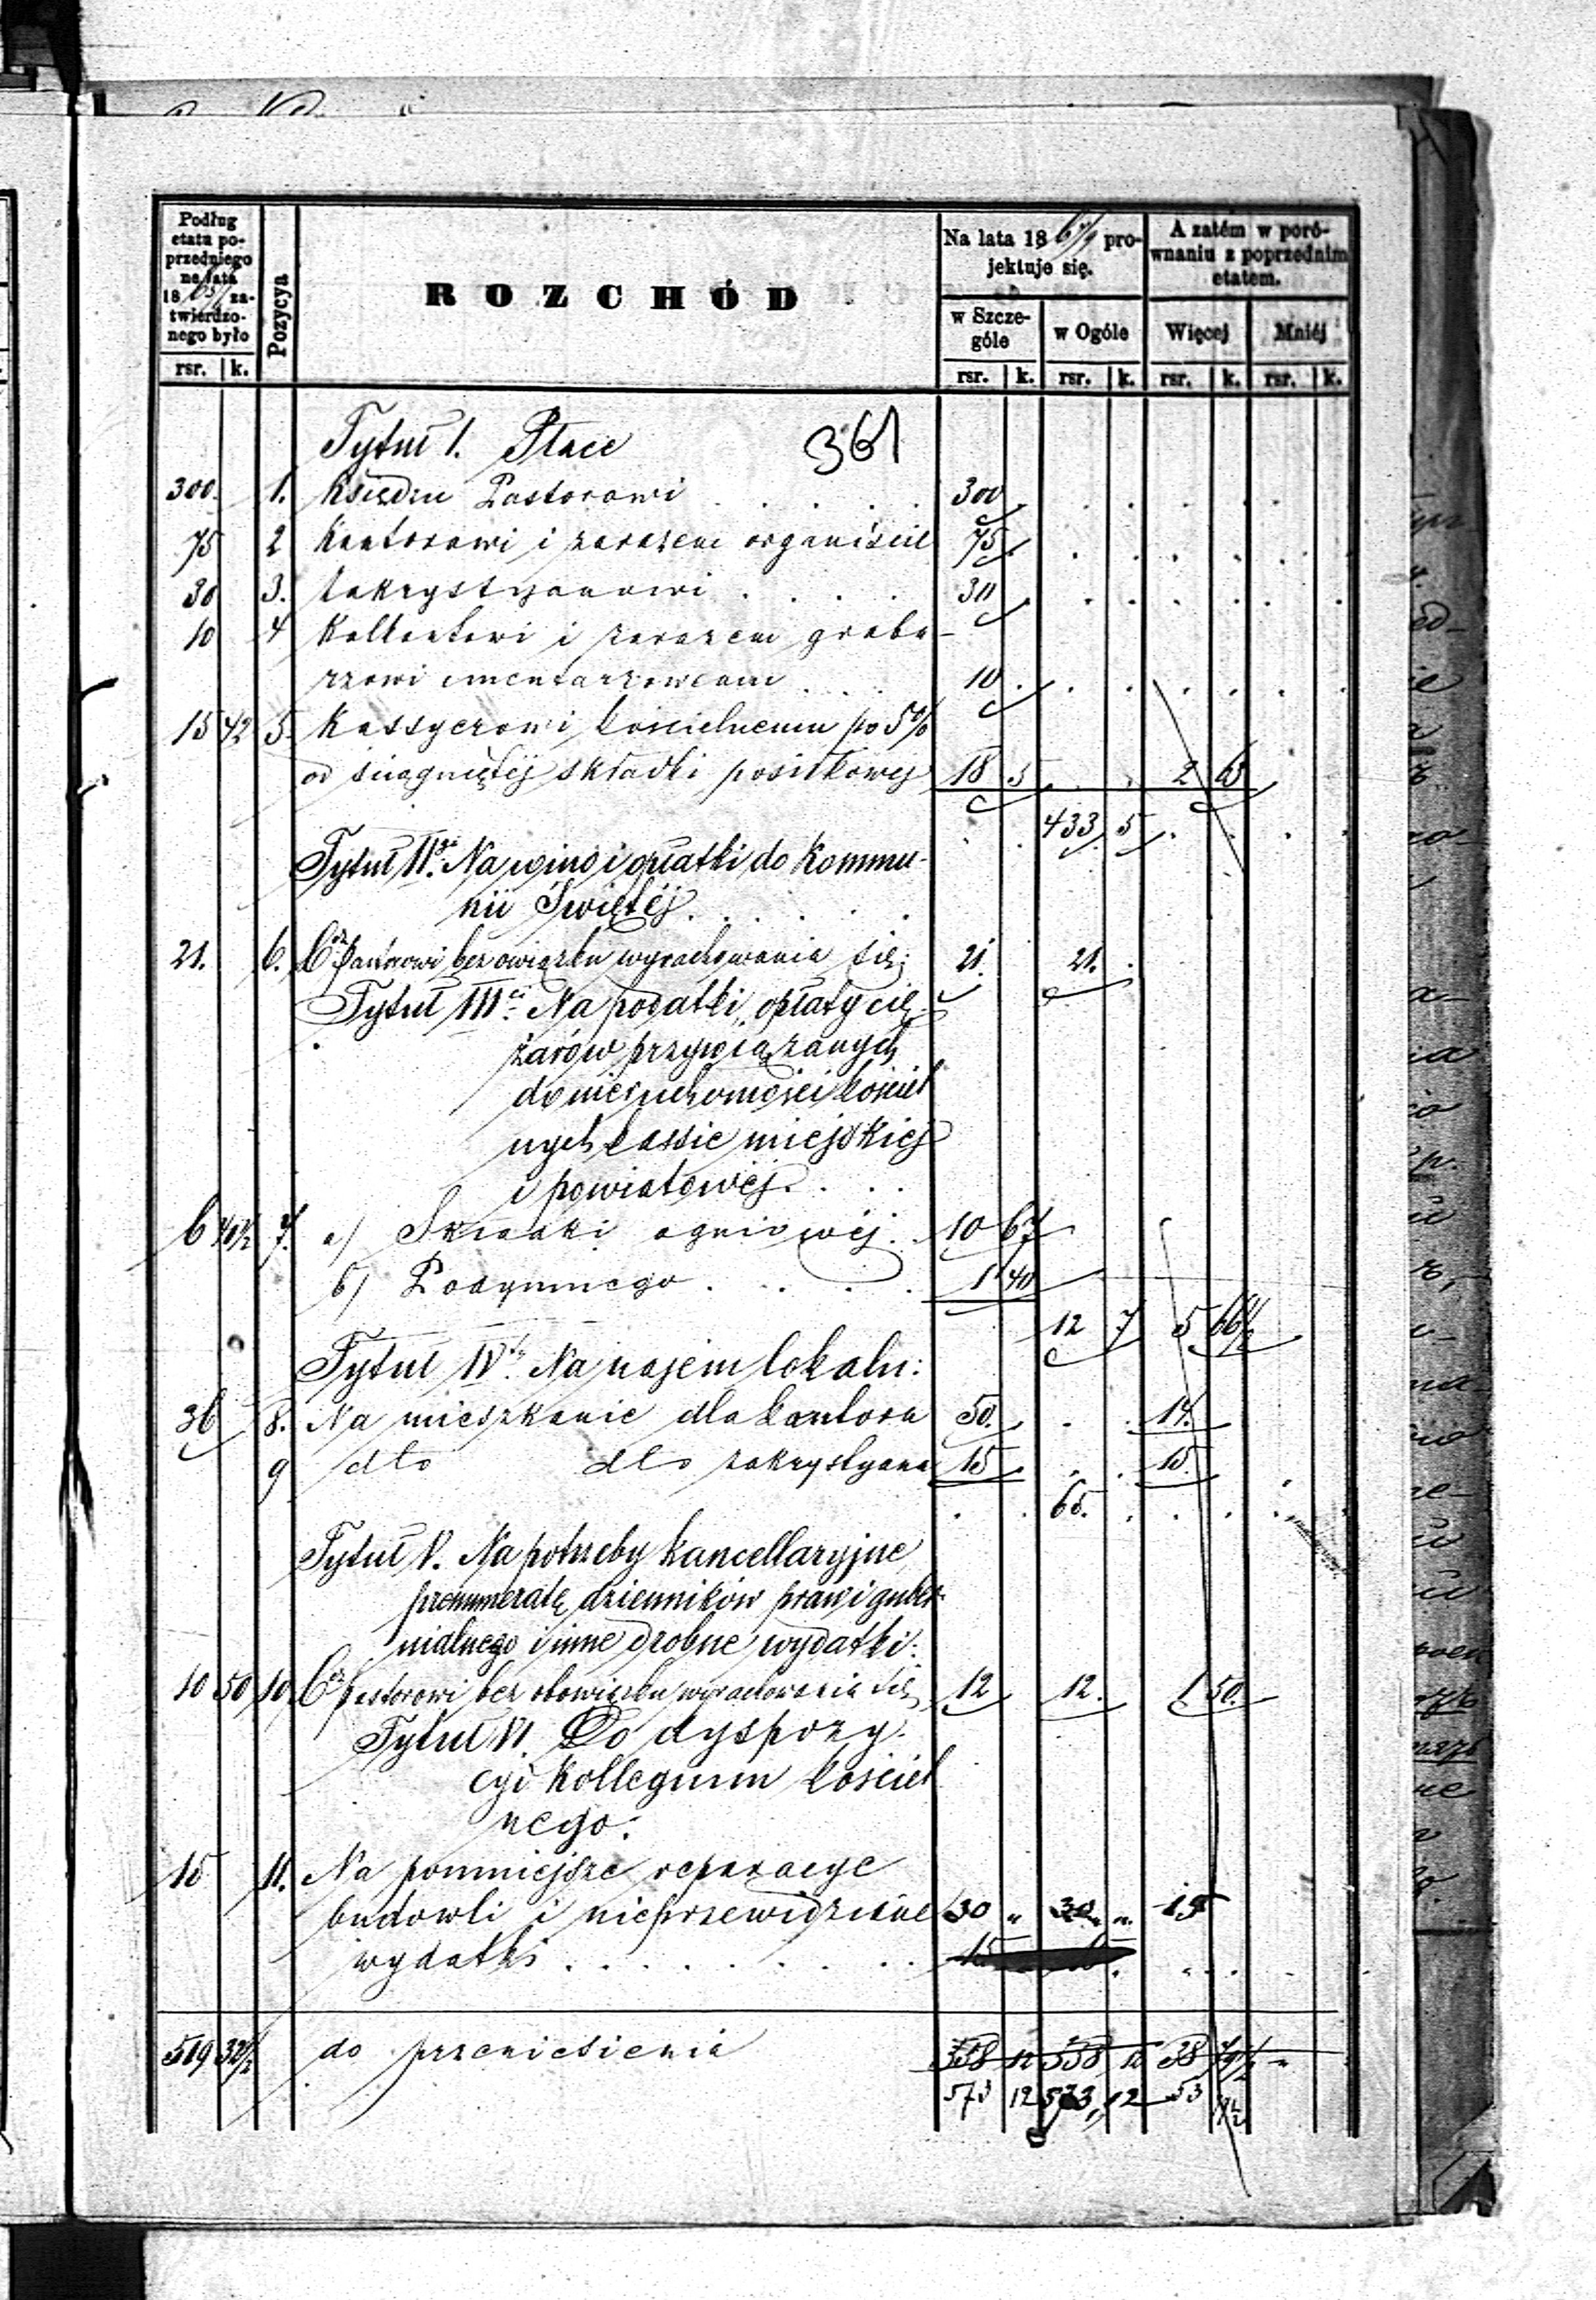 Podług etatu poprzedniego na lata 18 zatwierdzonego było
Pozycya
ROZCHÓD
Na lata 18 67/9 projektuje się.
A zatém w porównaniu z poprzednim etatem.
w Szczególe
w Ogóle
Więcej
Mniéj
rsr. k. rsr. k. rsr. k. rsr. k. rsr. k.
Tytuł I. Płace
361
300. 1. Księdzu Pastorowi 300
75 2 Kantorowi i zarazem organiście 75
30 3. Zakrystyanowi 30
10 4 Kalkantowi i zarazem graba-
rzowi cmentarzowemu 10
15 42 5. Kassyerowi kościelnemu po 5%
od ściągniętéj składki posiłkowej 18 5 2 63
433 5
Tytuł II. Na wino i opłatki do Kommu-
nii Świętéj
21. 6. Pastorowi bez owiązku wyrachowania się: 21. 21.
Tytuł III. Na podatki, opłaty cię-
żarów przywiązanych
do nieruchomości kościel
nych kassie miejskiej
i powiatowéj
6 40½ 7. a) Składki ogniowéj 10 67
b) Podymnego 1 40
12 7 5 66½
Tytuł IV. Na najem lokalu:
36 8. Na mieszkanie dla kantora 50. 14.
9 dto dto zakrystyana 15 15
65.
Tytuł V. Na potrzeby kancellaryjne,
prenumeratę dzienników praw i guber-
nialnego i inne drobne wydatki:
10 50 10. pastorowi bez obowiązku wyrachowania się 12 12. 1 50.
Tytuł VI. Do dyspozy-
cyi Kollegium kościel
nego:
15 11. Na pomniejsze reparacye
budowli i nieprzewidziane 30 „ 30 „ 15
wydatki 15
519 32½ do przeniesienia 558 12 558 12 38 79½
573 12 573 12 53